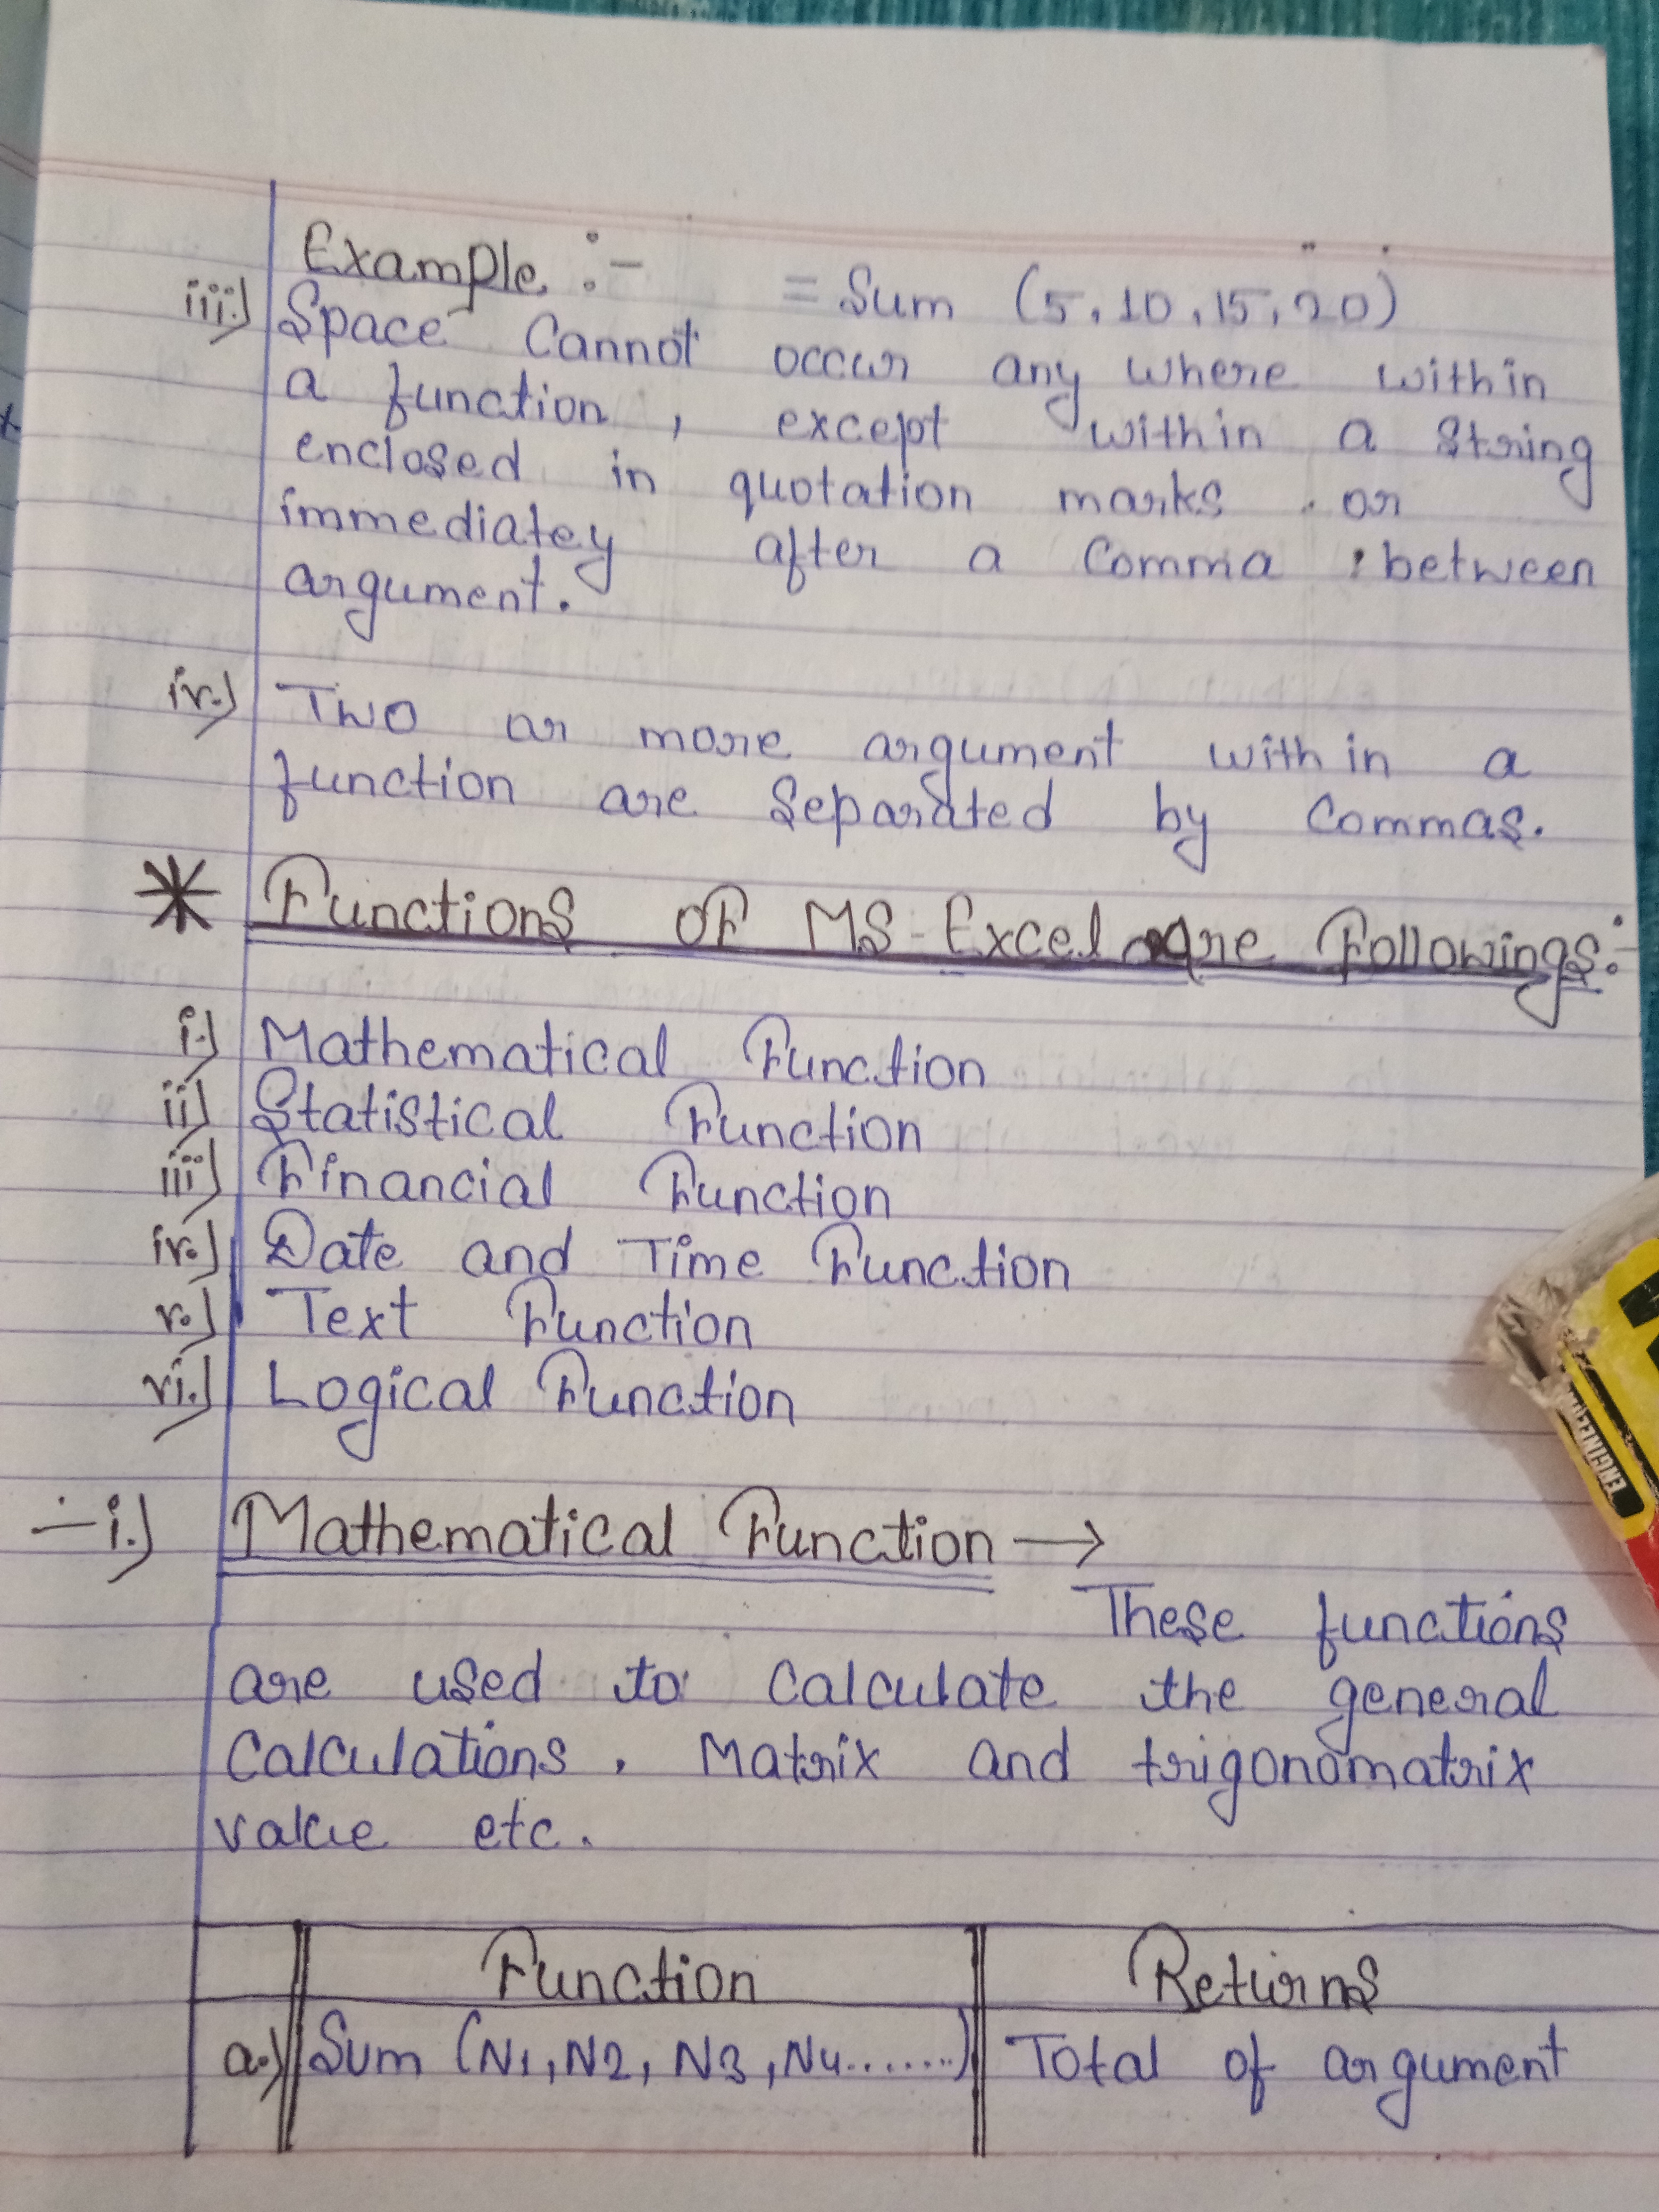 Example :- = Sum (5, 10, 15, 20)
iii.) Space Cannot occur any where within
a function, except within a string
enclosed in quotation marks or
immediatey after a Comma between
argument.
iv.) Two or more argument within a
function are separated by Commas.
* Functions OF MS-Excel are Followings:-
i.) Mathematical Function
ii) Statistical Function
iii) Financial Function
iv.) Date and Time Function
v.) Text Function
vi.) Logical Function
-i.) Mathematical Function →
These functions
are used to calculate the general
Calculations, Matrix and trigonomatrix
value etc.
Function Returns
a.) Sum (N1, N2, N3, N4.......) Total of argument
ENGINEERED